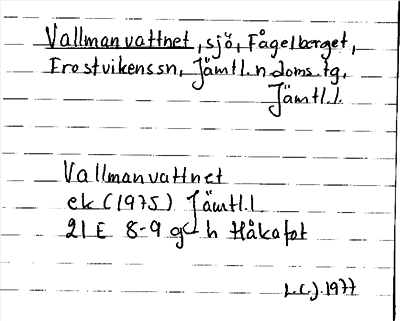 Vallmanvattnet, sjö, Fågelberget,
Frostvikens sn, Jämtl. n. doms. tg,
Jämtl. l.
Vallmanvattnet
ek (1975) Jämtl. l
21 E 8-9 g-h Håkafot
L.C.J. 1977